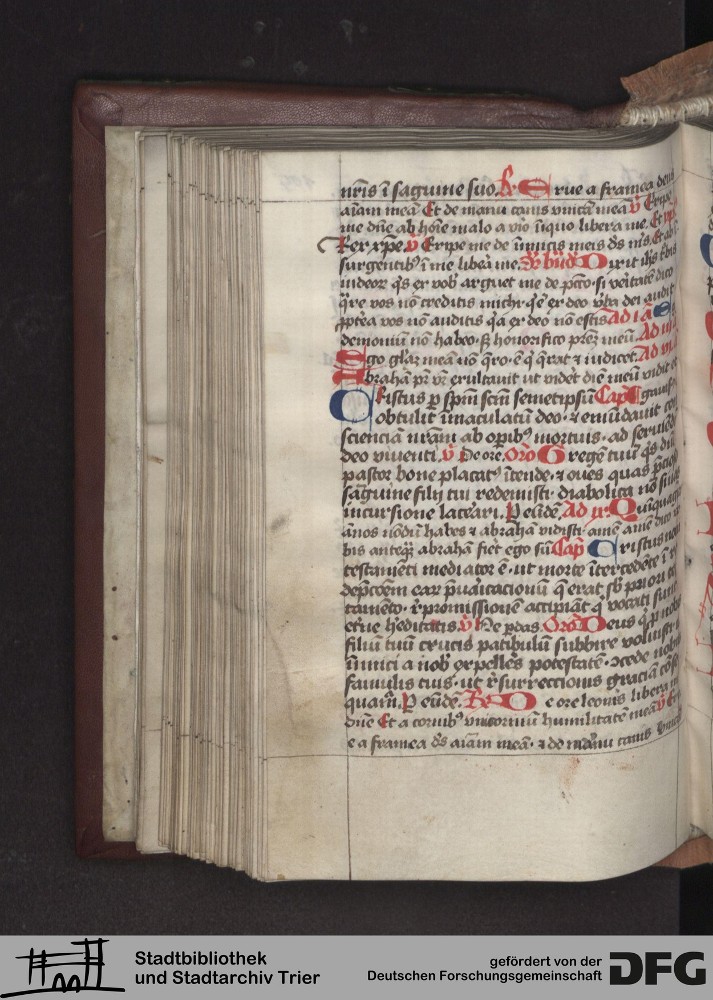 nr̄is ī saguine suo. R̸ Erue a framea deus
aīam meā Et de manu canis unicā meā v̄ Eripe
me dn̄e ab hoīe malo a vīo iniquo libera me. Et
v̄ Eripe me de inimicis meis ds̄ m̄s. Et ab ī
surgentibꝫ ī me liber̄a me.
iudeorꝫ qs̄ ex vob̄ arguet me de pctō. si veritatē dico
qr̄e vos nō creditis michi. qī ē ex deo v̄ba dei audit
ppt̄ea vos nō auditis qa ex deo nō estis Ad iā
demoniū nō habeo. sꝫ honorifico pr̄eꝫ meū. Ad
Ego glaꝫ meā nō q̄ro. ē q̄ q̄rat ⁊ iudicet. Ad vi
Abrahā pr̄ vr̄ exultauit ut videt diē meū vidit et
Cristus p̱ spm̄ scm̄ semetipsū Cap̄
obtulit īmaculatū deo. ⁊ emūdauit con
scienciā nr̄am ab op̄ibꝫ mortuis. ad seruiēd
deo viuenti. v̄ De ore. Orō Gregē tuū qs̄ dn̄e
pastor bone placatꝰ ītende. ⁊ oues quas p̄cioso
saguine filij tui redemisti. diabolica nō sinas
incursione lac̄ari. P eūdē. Ad ix. Quīquagīta
ānos nōdū habes ⁊ abrahā vidisti. amē amē dico vo
bis anteqꝫ abrahā fiet ego sū Cap̄ Cristus noui
testamēti mediator ē. ut morte ītercedēte ī r̄
dēpcōem ear p̄uaricacionū q̄ erāt sb̄ priori tes
tamēto. r̄promissionē accipiāt q̱ vocati sunt
et̄ne h̄editatis. v̄ Ne p̱das. Orō Deus q̱ p̱ nobis
filiū tuū crucis patibulū subbire voluisti.
īimici a nob̄ expelleˢ potestatē. ꝯcede nobis
famulis tuis. ut r̄surreccionis graciā cōse
quam̄. P eūdē. R̸ De ore leonis libera me
dn̄e Et a cornibꝫ vnicorniū humilitatē meā v̄ Eru
e a framea ds̄ aīam meā. ⁊ de manu canis vnicā
Stadtbibliothek
und Stadtarchiv Trier
gefördert von der
Deutschen Forschungsgemeinschaft
DFG